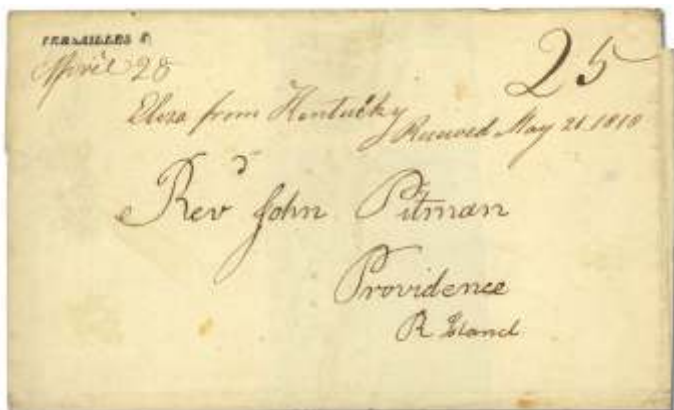 VERSAILLES K
April 28
25
Eliza from Kentucky
Received May 21. 1818
Revd John Pitman
Providence
R Island